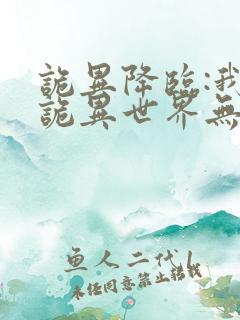 詭異降臨:我
詭異世界無
魚人二代/
未經同意禁止轉載